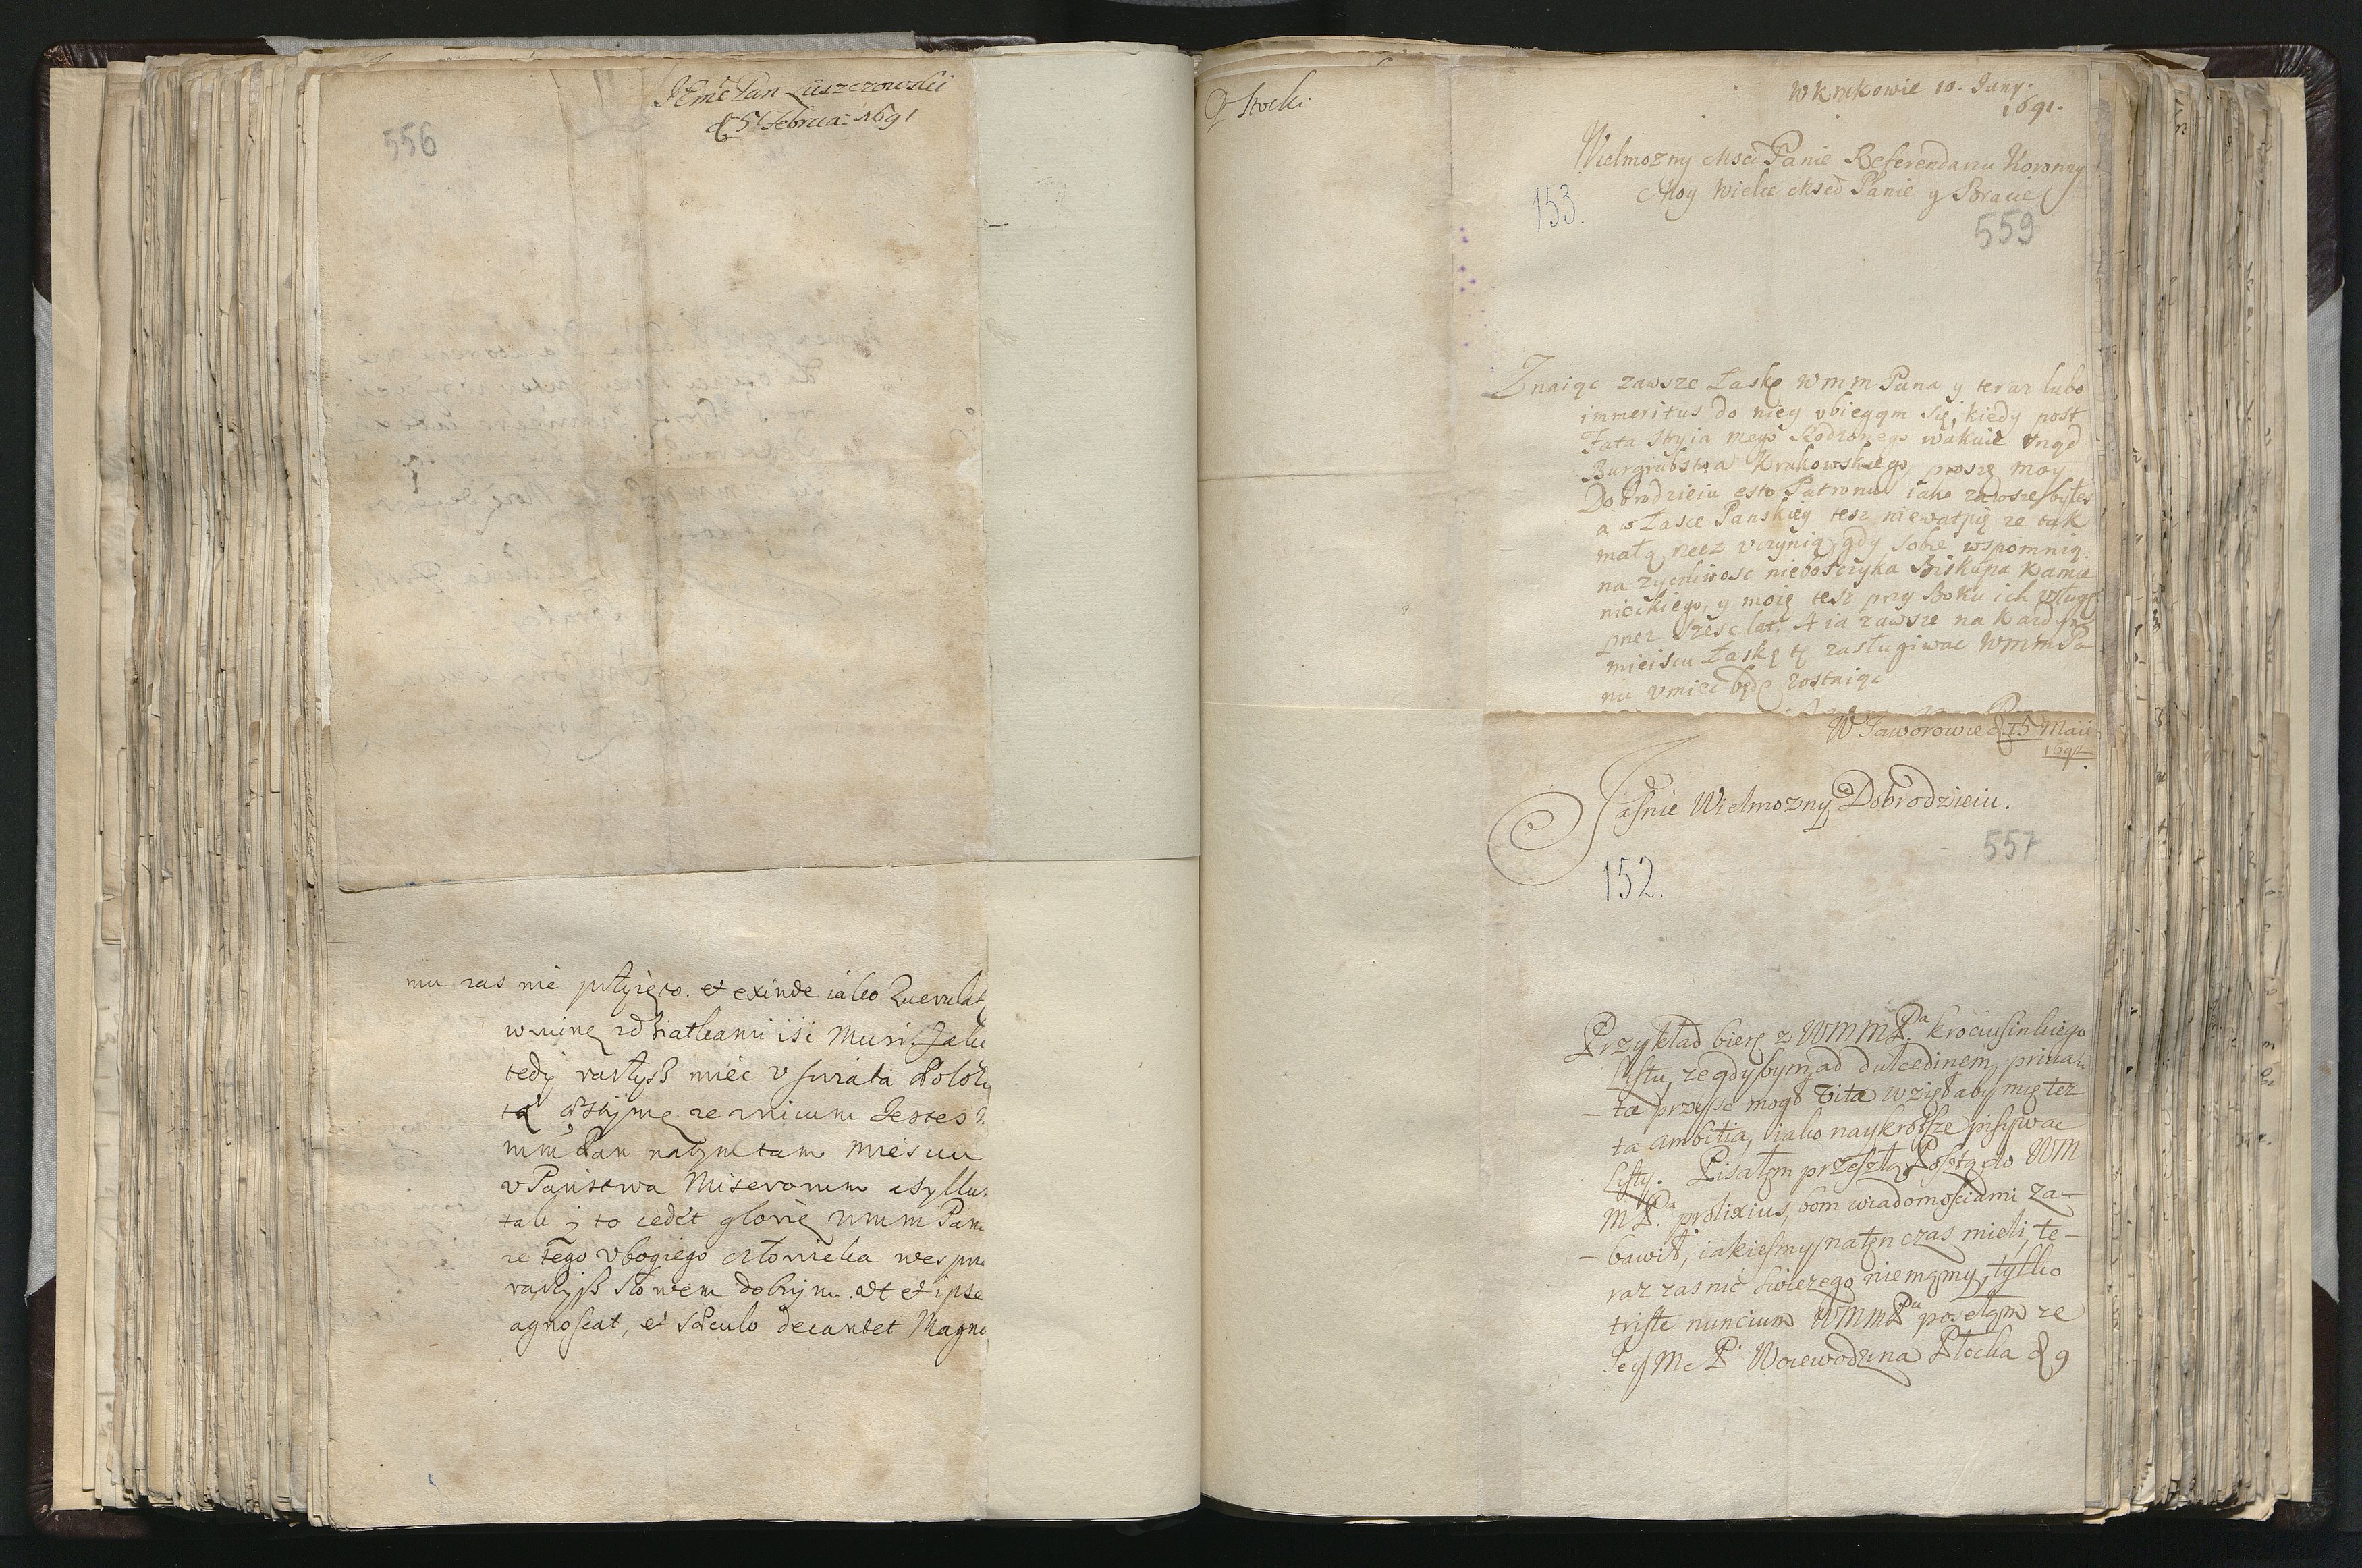 JEmć Pan Luszczowski
d 5 Februa: 1691
556
mu zas nie przyięto. et exinde iako
w winę
tedy raczysz mieć v swiata
ze amicum Iestes
mm Pan natym tam mieiscu
v Panstwa Miserorum asyllum
tak y to cedet glorię wmm Pana
ze tego vbogiego człowieka
raczysz słowem dobrym. vt et ipse
agnoscat, et sæculo decantet Magna
W Krakowie 10. Juny.
1691.
Wielmozny Msci Panie Referendarzu Koronny
Moy Wielce Mscd Panie y Bracie
153.
559
Znaiąc zawsze Łaskę wmm Pana y teraz lubo
immeritus do niey vbiegąm się, kiedy post
Fata Stryia mego Rodzonego wakuie Vrząd
Burgrabstwa Krakowskiego, proszę moy
Dobrodzieiu esto Patronus iako zawsze byłes
a w Łasce Panskiey tesz niewątpię ze tak
małą rzecz vczynią, gdy sobie wspomnią
na zyczliwosc nieboszczyka Biskupa Kamie
nieckiego, y moię tesz przy Boku ich vsługę
przez szesc lat. A ia zawsze na kazdym
mieiscu Łaskę tę zasługiwac wmm Pa
nu vmiec będę zostaiąc
W Jaworowie d 15 Maii
1692
Jasnie Wielmozny Dobrodzieiu.
557
152.
Przykład bierę z WMMPa krociusinkiego
Listu, ze gdybym ad dulcedinem
ta przysc mogł vita wzięła by mię tez
ta ambitia, iako naykrotsze pisywac
Listy. Pisałem przeszłą Posztą do WM
MPa prolixius, bom wiadomosciami za-
- bawił, iakiesmy natęn czas mieli, te-
raz zas nic swiezego niemamy, tylko
triste nuncium WMMPu posełam ze
Ieÿ Mc P. Woiewodzina Płocka d 9